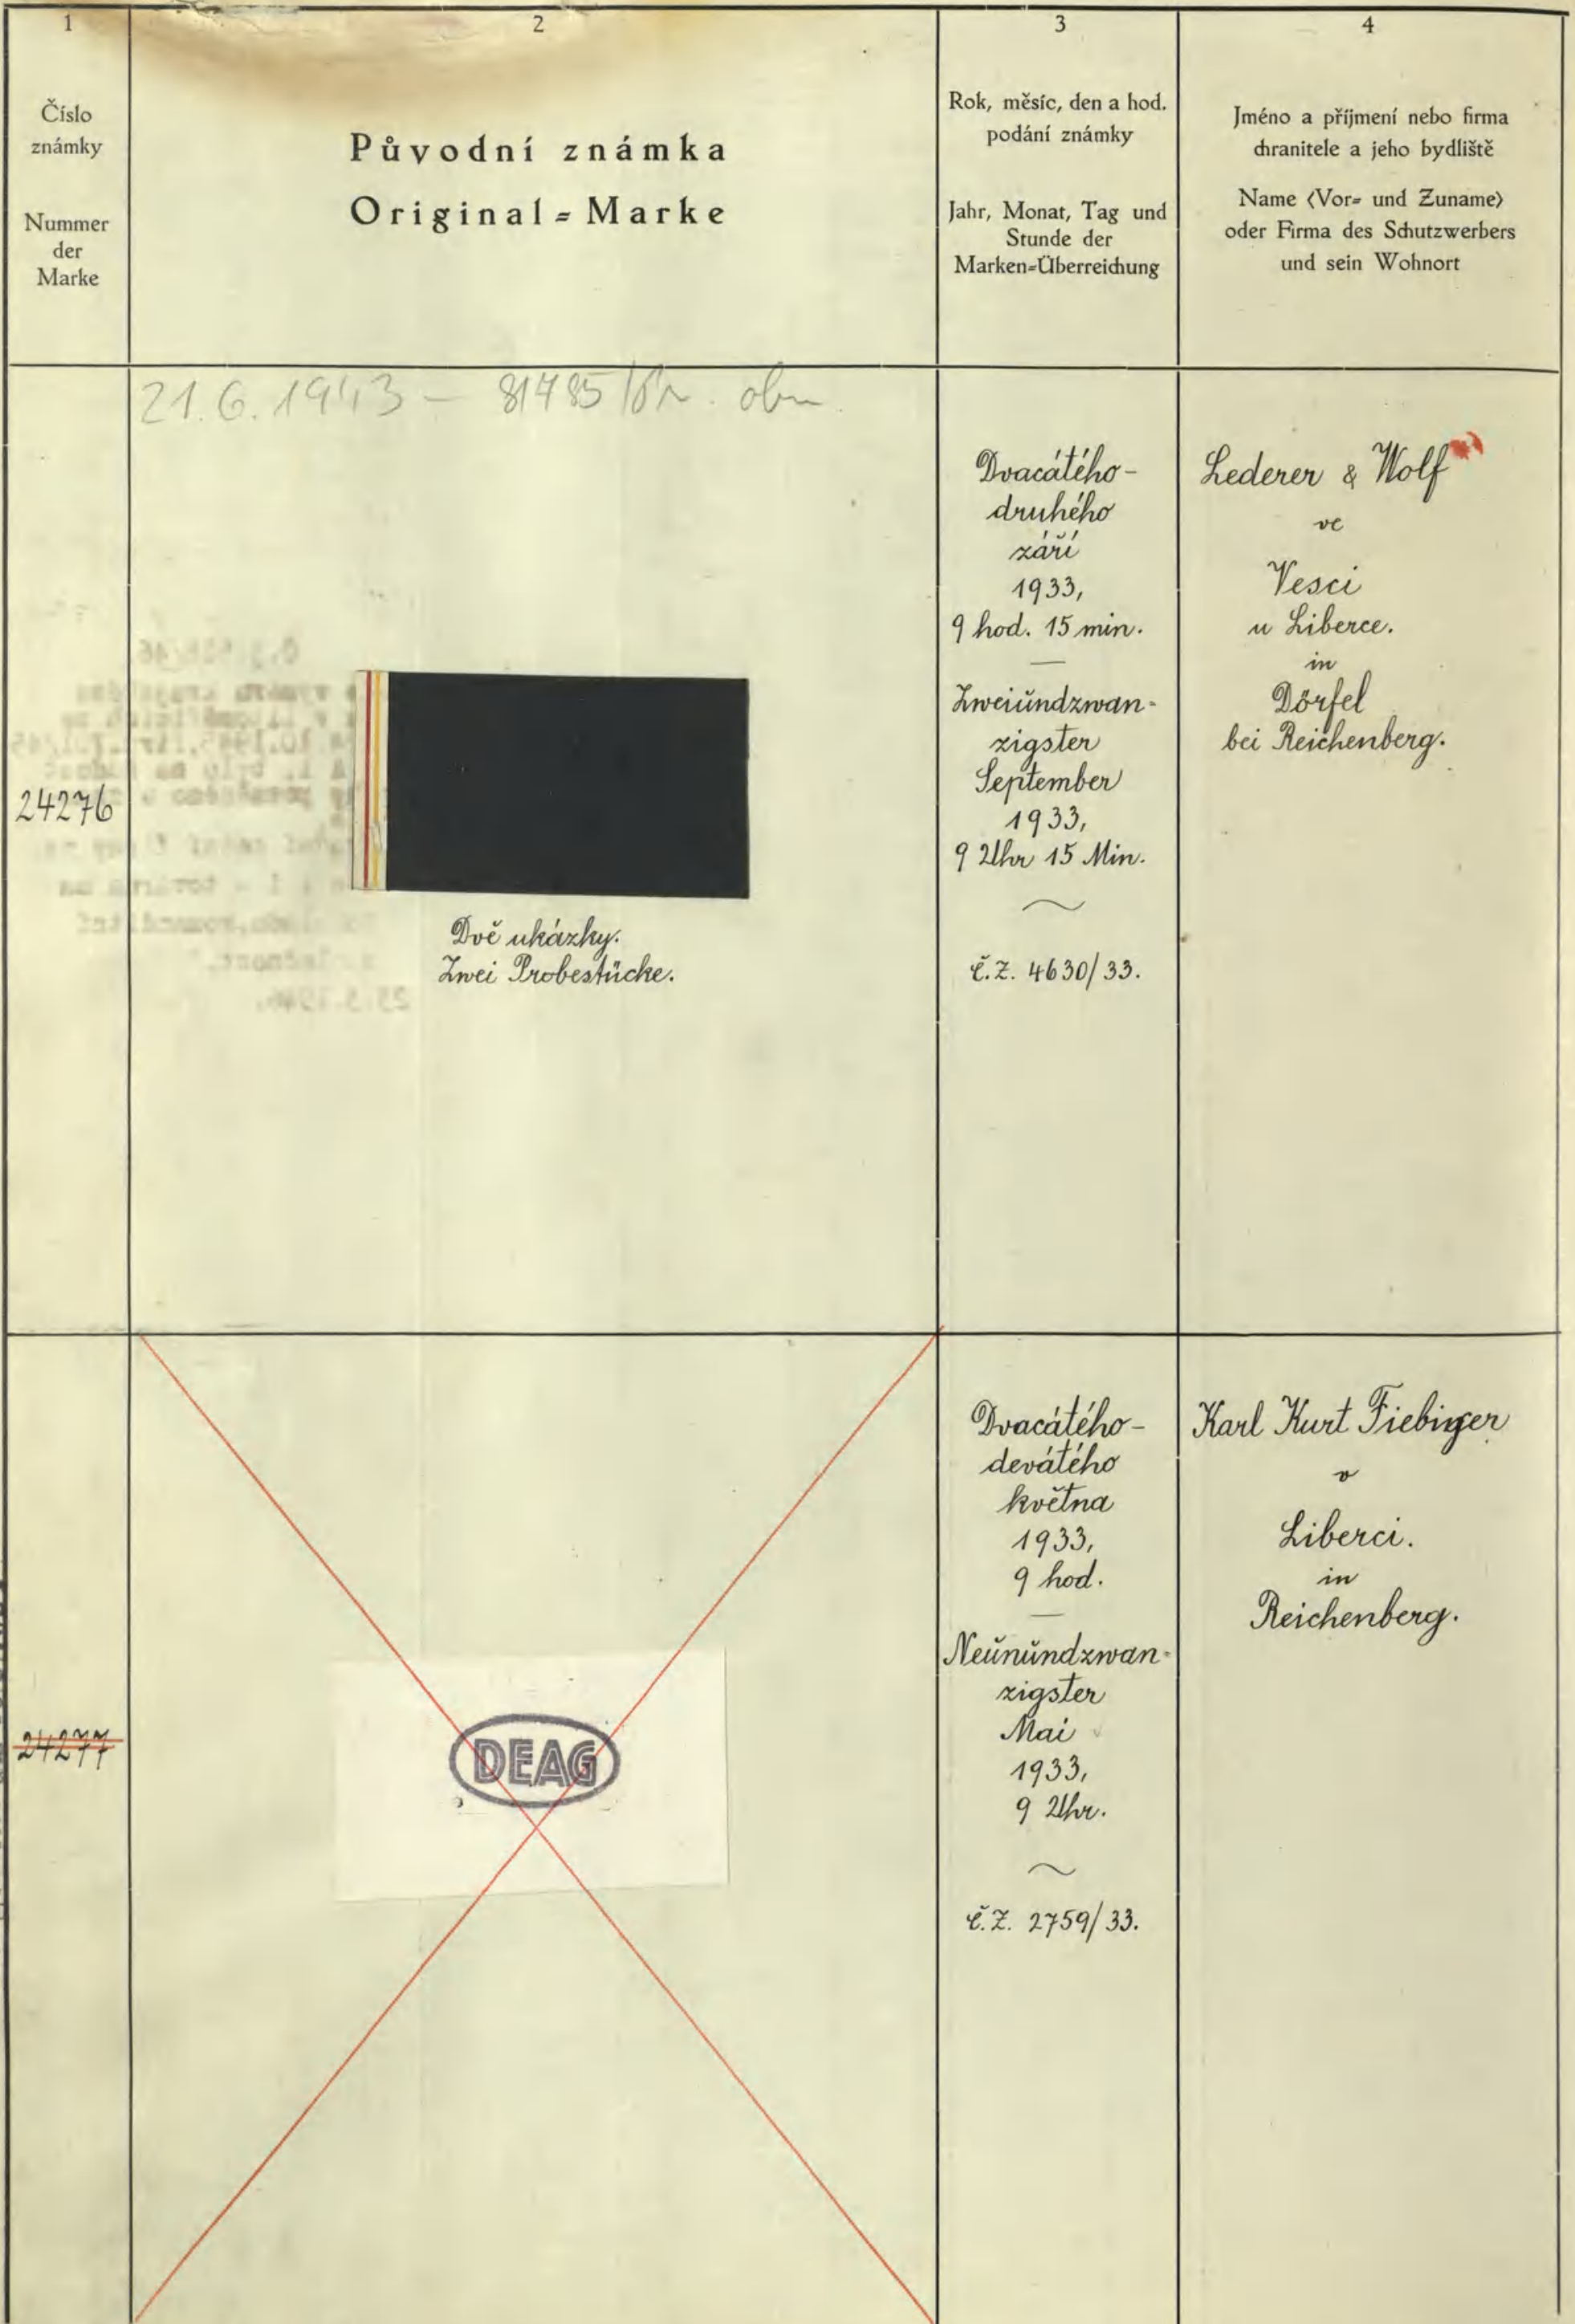 1
2
3
4
Číslo
známky
Nummer
der
Marke
Původní známka
Original=Marke
Rok, měsíc, den a hod.
podání známky
Jahr, Monat, Tag und
Stunde der
Marken=Überreichung
Jméno a příjmení nebo firma
chranitele a jeho bydliště
Name (Vor= und Zuname)
oder Firma des Schutzwerbers
und sein Wohnort
21.6.1943 –
24276
Dvě ukázky.
Zwei Probestücke.
Dvacátého-
druhého
září
1933,
9 hod. 15 min.
Zweiŭndzwan-
zigster
September
1933,
9 Uhr 15 Min.
č.Z. 4630/33.
Lederer & Wolf
ve
Vesci
u Liberce.
in
Dörfel
bei Reichenberg.
24277
DEAG
Dvacátého-
devátého
května
1933,
9 hod.
Neŭnŭndzwan-
zigster
Mai
1933,
9 Uhr.
č.Z. 2759/33.
Karl Kurt Fiebiger
v
Liberci.
in
Reichenberg.